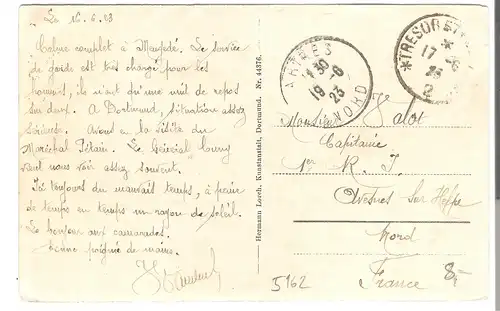 Le 16.6.23
Calme complet à Mengede. Le service
de garde est très chargé pour les
hommes, ils n'ont qu'une nuit de repos
sur deux. A Dortmund, situation assez
sérieuse. Avons eu la visite du
Maréchal Pétain. Le Général
vient nous voir assez souvent.
Ici toujours du mauvais temps, à peine
de temps en temps un rayon de soleil.
Le bonjour aux camarades.
Bonne poignée de mains.
Hermann Lorch, Kunstanstalt, Dortmund. Nr. 44376.
AVESNES
19-6
23
NORD
*TRESOR ET
17-6
23
2
Monsieur Jalot
Capitaine
1er R. I.
Avesnes sur Helpe
Nord
France
5162
8,-